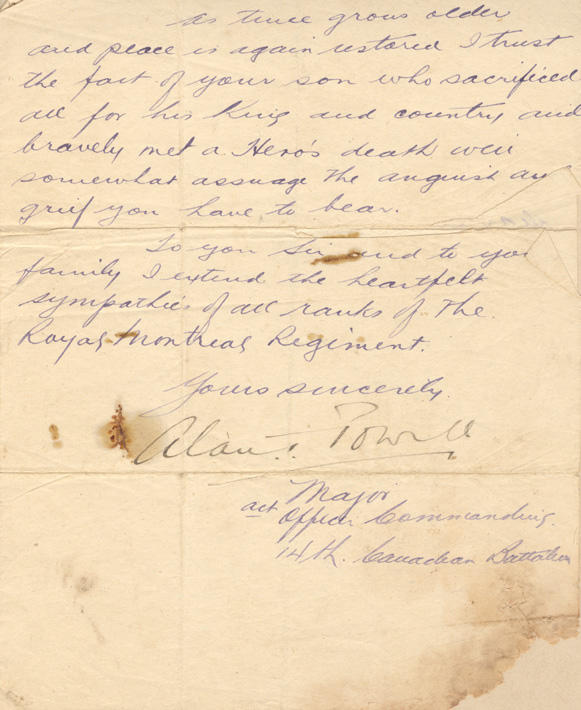 As time grows older
and peace is again restored I trust
the fact of your son who sacrificed
all for his King and country and
bravely met a Hero's death will
somewhat assuage the anguish an
grief you have to bear.
To you Sir and to you
family I extend the heartfelt
sympathies of all ranks of the
Royal Montreal Regiment.
Yours sincerely.
Alan Powell
Major
act Officer Commanding.
14th. Canadian Battalion